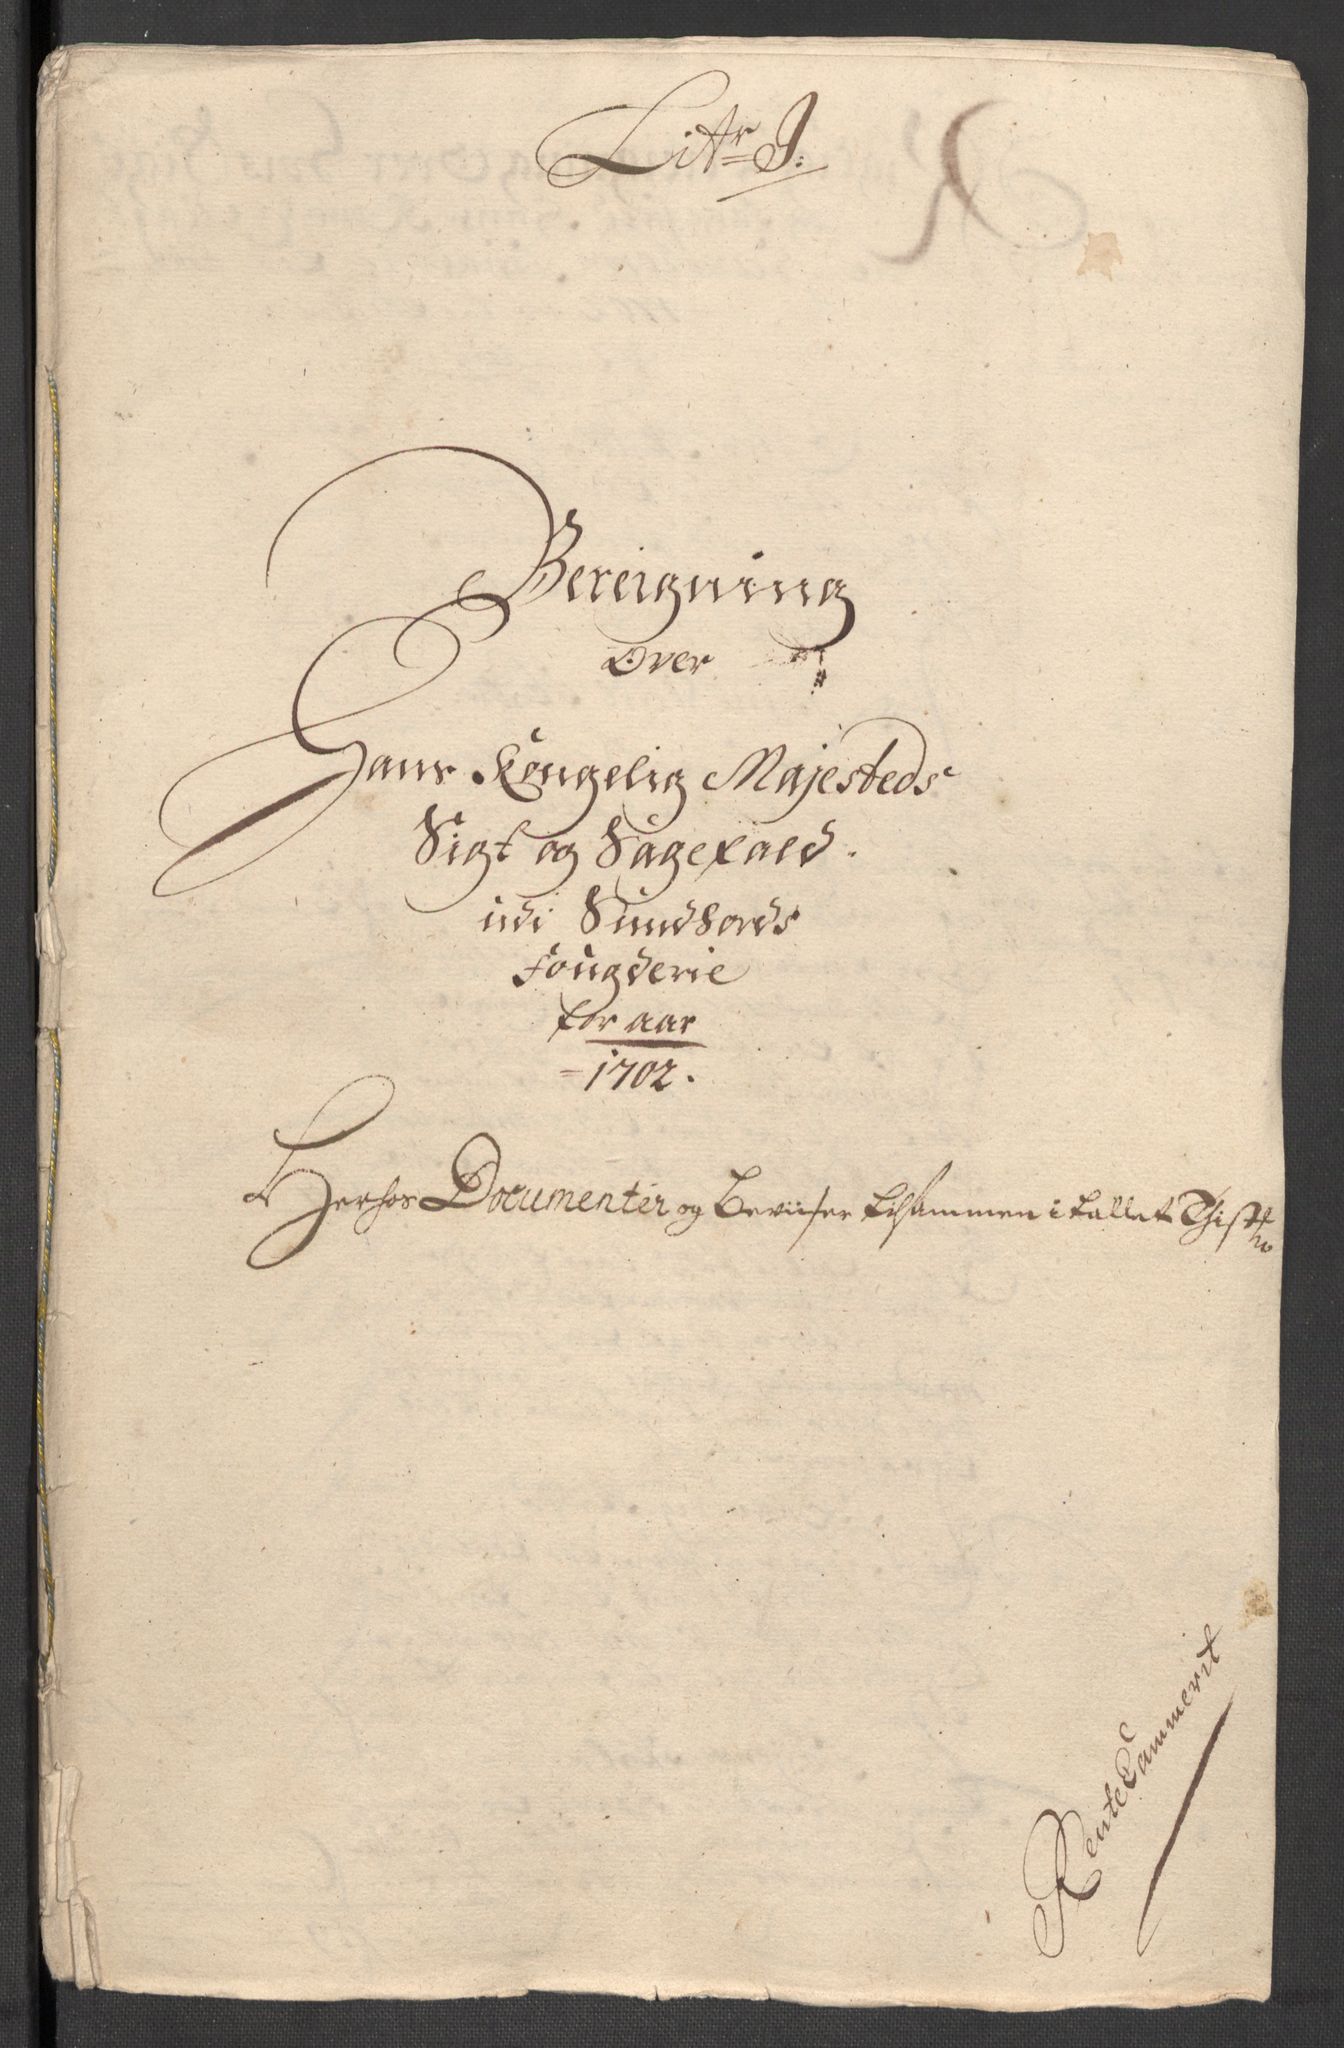 Litr J:
Bereigning
Over
Hans Kongelig Majesteds
Sigt og Sagefald
udi Sundfords
Fougderie
for aar
1702.
Herhos Documenter og Beviiser tilsammen i tallet
RenteCammerit